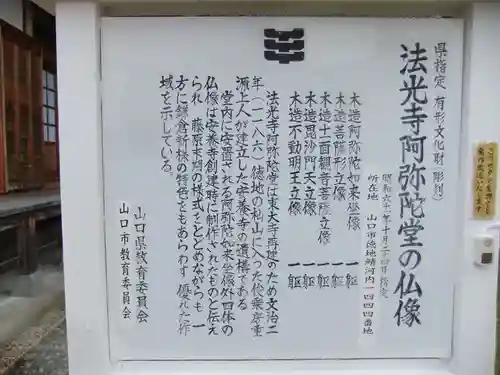 県指定 有形文化財(彫刻)
法光寺阿弥陀堂の仏像
昭和六十年十月二十四日指定
所在地 山口市徳地鯖河内一四四四番地
木造阿弥陀如来坐像 一躯
木造菩薩形立像 一躯
木造十一面観音菩薩立像 一躯
木造毘沙門天立像 一躯
木造不動明王立像 一躯
法光寺阿弥陀堂は東大寺再建のため文治二
年(一一八六)徳地の杣山に入った俊乗房重
源上人が建立した安養寺の遺構である。
堂内に安置される阿弥陀如来坐像外四体の
仏像は安養寺創建時に制作されたものと伝え
られ、藤原末期の様式をとどめながらも、一
方に鎌倉新様の特色をもあらわす優れた作
域を示している。
山口県教育委員会
山口市教育委員会